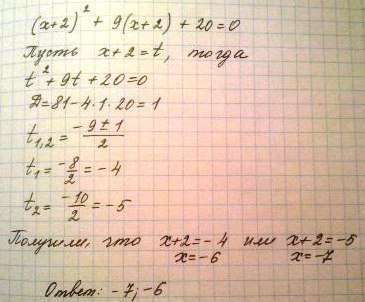 (x+2)² + 9(x+2) + 20 = 0
Пусть x+2 = t, тогда
t² + 9t + 20 = 0
Д = 81 - 4·1·20 = 1
t₁,₂ = (-9 ± 1)/2
t₁ = -8/2 = -4
t₂ = -10/2 = -5
Получили, что x+2 = -4 или x+2 = -5
x = -6 x = -7
Ответ: -7; -6